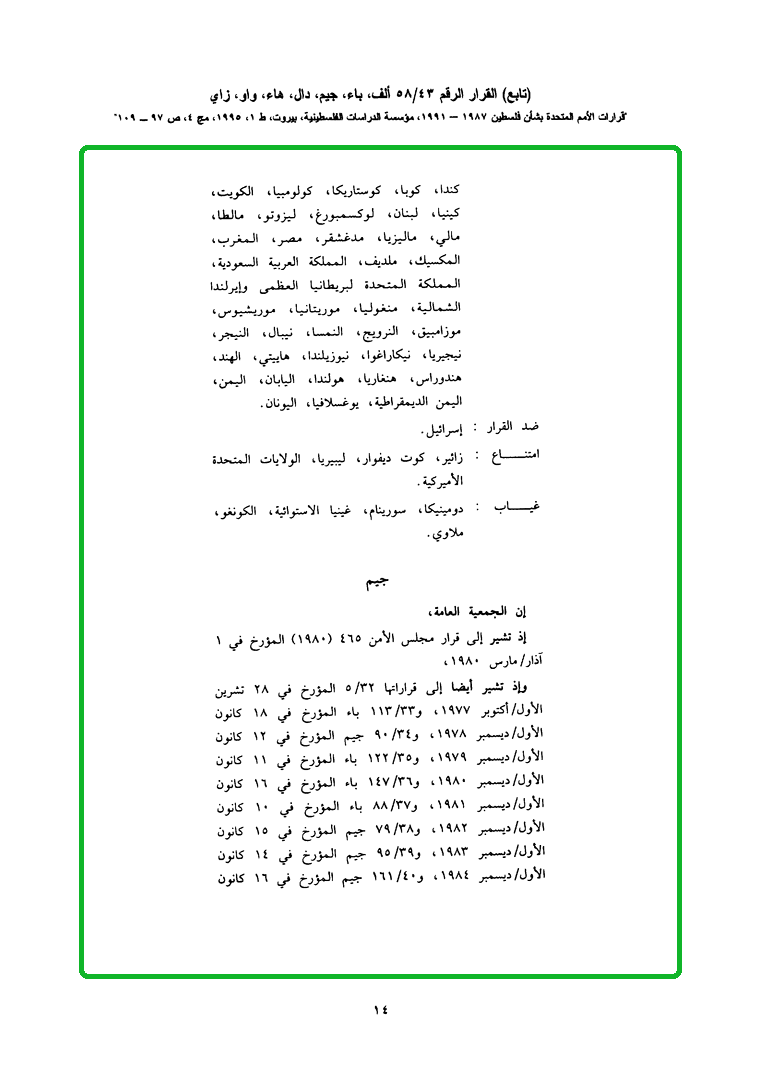 (تابع) القرار الرقم ٥٨/٤٣ ألف، باء، جيم، دال، هاء، واو، زاي
"قرارات الأمم المتحدة بشأن فلسطين ١٩٨٧ – ١٩٩١، مؤسسة الدراسات الفلسطينية، بيروت، ط ١، ١٩٩٥، مج ٤، ص ٩٧ – ١٠٩"
كندا، كوبا، كوستاريكا، كولومبيا، الكويت،
كينيا، لبنان، لوكسمبورغ، ليزوتو، مالطا،
مالي، ماليزيا، مدغشقر، مصر، المغرب،
المكسيك، ملديف، المملكة العربية السعودية،
المملكة المتحدة لبريطانيا العظمى وإيرلندا
الشمالية، منغوليا، موريتانيا، موريشيوس،
موزامبيق، النرويج، النمسا، نيبال، النيجر،
نيجيريا، نيكاراغوا، نيوزيلندا، هاييتي، الهند،
هندوراس، هنغاريا، هولندا، اليابان، اليمن،
اليمن الديمقراطية، يوغسلافيا، اليونان.
ضد القرار : إسرائيل.
امتنـــــاع : زائير، كوت ديفوار، ليبيريا، الولايات المتحدة
الأميركية.
غيــــاب : دومينيكا، سورينام، غينيا الاستوائية، الكونغو،
ملاوي.
جيم
إن الجمعية العامة،
إذ تشير إلى قرار مجلس الأمن ٤٦٥ (١٩٨٠) المؤرخ في ١
آذار/مارس ١٩٨٠،
وإذ تشير أيضا إلى قراراتها ٥/٣٢ المؤرخ في ٢٨ تشرين
الأول/أكتوبر ١٩٧٧، و١١٣/٣٣ باء المؤرخ في ١٨ كانون
الأول/ديسمبر ١٩٧٨، و٩٠/٣٤ جيم المؤرخ في ١٢ كانون
الأول/ديسمبر ١٩٧٩، و١٢٢/٣٥ باء المؤرخ في ١١ كانون
الأول/ديسمبر ١٩٨٠، و١٤٧/٣٦ باء المؤرخ في ١٦ كانون
الأول/ديسمبر ١٩٨١، و٨٨/٣٧ باء المؤرخ في ١٠ كانون
الأول/ديسمبر ١٩٨٢، و٧٩/٣٨ جيم المؤرخ في ١٥ كانون
الأول/ديسمبر ١٩٨٣، و٩٥/٣٩ جيم المؤرخ في ١٤ كانون
الأول/ديسمبر ١٩٨٤، و١٦١/٤٠ جيم المؤرخ في ١٦ كانون
١٤